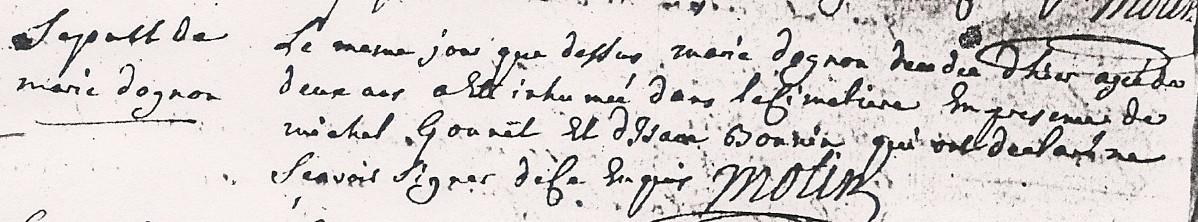 Sepult de
marie dognon
Le meme jour que dessus marie dognon decedée d'hier agée de
deux ans a Ett inhumeé dans le Cimetiere En presence de
michel Gounet Et d'Isaac Bonnin qui ont declaré ne
Scavoir Signer de Ce Enquis Motin